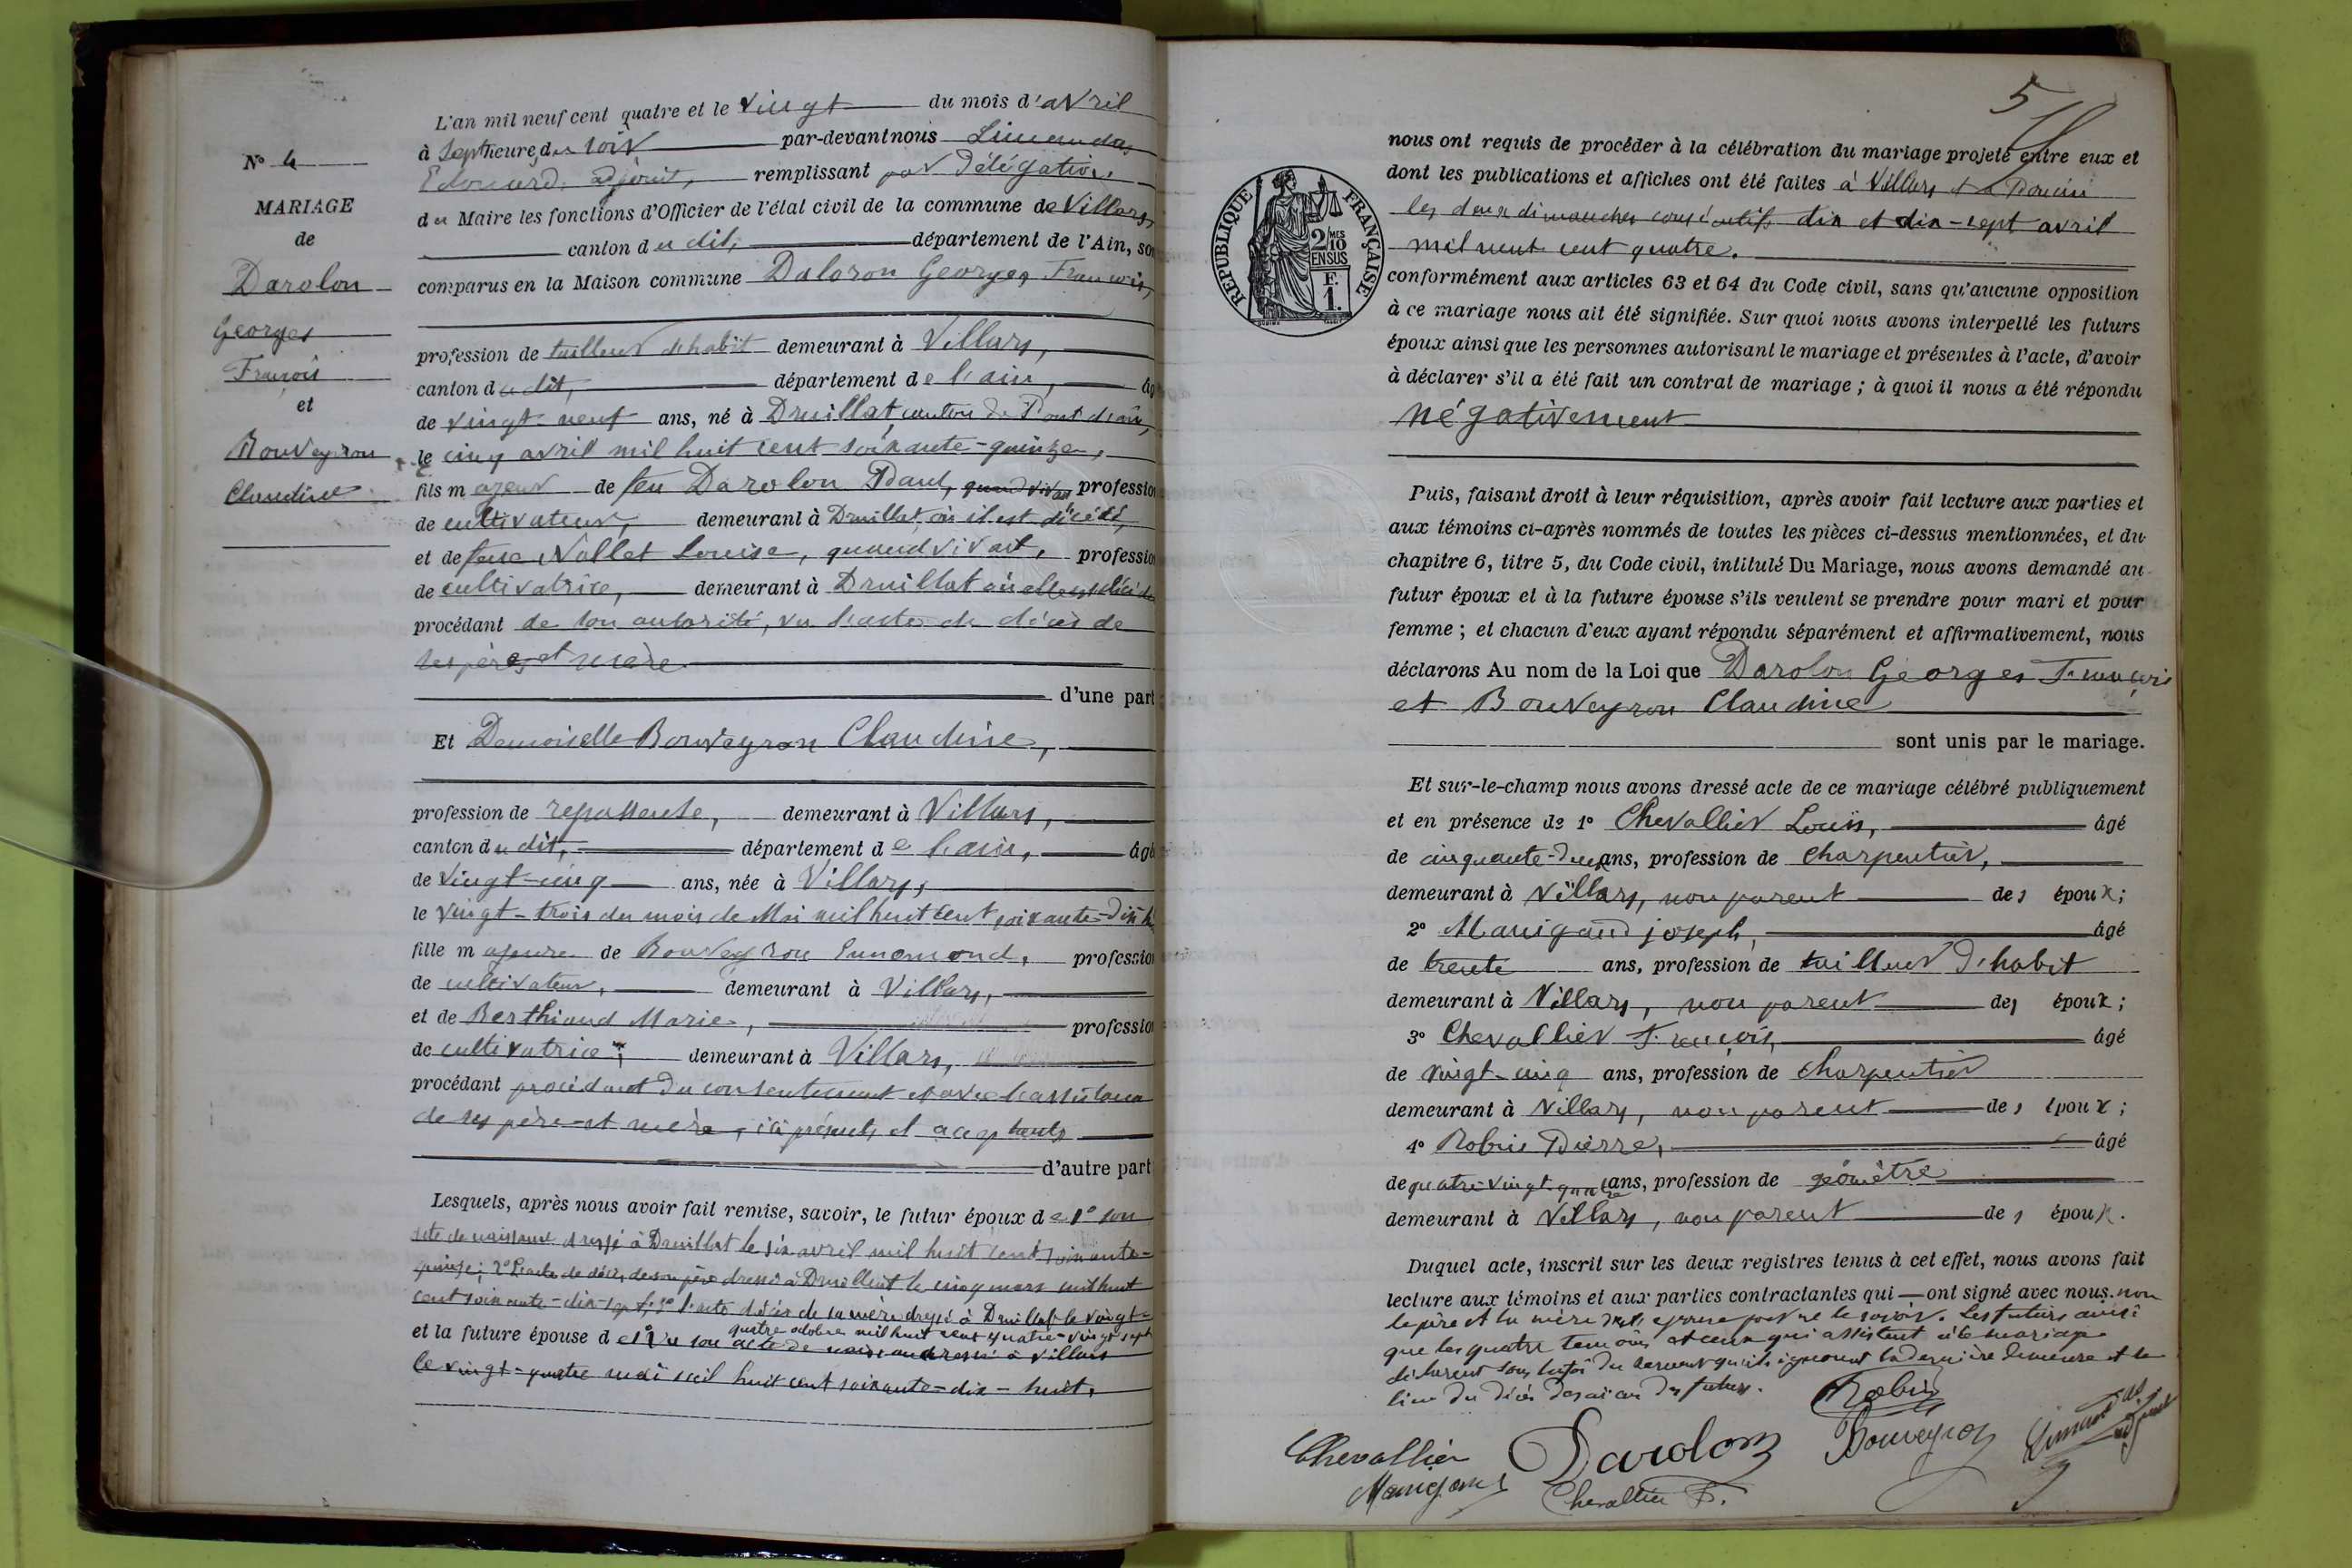 N° 4
MARIAGE
de
Darolon
Georges
François
et
Bouveyron
Claudine
L'an mil neuf cent quatre et le vingt du mois d'avril
à sept heure, du soir par-devant nous Limandas
Edouard, adjoint, remplissant par délégation
du Maire les fonctions d'Officier de l'état civil de la commune de Villars,
canton du dit, département de l'Ain, so
comparus en la Maison commune Daloron Georges, François,
profession de tailleur d'habit demeurant à Villars,
canton du dit, département de l'ain, âg
de vingt-neuf ans, né à Druillat, canton de Pont d'ain,
le cinq avril mil huit cent soixante-quinze,
fils majeur de feu Darolon Paul, quand vivait profession
de cultivateur, demeurant à Druillat, où il est décédé,
et de feue Nallet Louise, quand vivait, profession
de cultivatrice, demeurant à Druillat où elle est décédée
procédant de son autorité, vu l'acte de décès de
ses père et mère
d'une part
Et Demoiselle Bouveyron Claudine,
profession de repasseuse, demeurant à Villars,
canton du dit, département de l'ain, âgé
de vingt-cinq ans, née à Villars,
le vingt-trois du mois de Mai mil huit cent soixante-dix h
fille majeure de Bouveyron profession
de cultivateur, demeurant à Villars,
et de Berthiaud Marie, profession
de cultivatrice, demeurant à Villars,
procédant procédant du consentement et avec l'assistance
de ses père et mère, ici présents et aceptents
d'autre part
Lesquels, après nous avoir fait remise, savoir, le futur époux de 1° son
acte de naissance dressé à Druillat le six avril mil huit cent soixante-
quinze; 2° l'acte de décès de son père dressé à Druillat le cinq mars mil huit
cent soixante-dix-sept; 3° l'acte décès de sa mère dressé à Druillat le vingt-
quatre octobre mil huit cent quatre-vingt sept
et la future épouse de 1° Vu son acte de naissance dressé à Villars
le vingt-quatre mai mil huit cent soixante-dix-huit,
5
nous ont requis de procéder à la célébration du mariage projeté entre eux et
dont les publications et affiches ont été faites à Villars et à
les deux dimanches consécutifs dix et dix-sept avril
mil neuf cent quatre.
RÉPUBLIQUE FRANÇAISE
2 MES
10
EN SUS
F.
1.
conformément aux articles 63 et 64 du Code civil, sans qu'aucune opposition
à ce mariage nous ait été signifiée. Sur quoi nous avons interpellé les futurs
époux ainsi que les personnes autorisant le mariage et présentes à l'acte, d'avoir
à déclarer s'il a été fait un contrat de mariage ; à quoi il nous a été répondu
négativement
Puis, faisant droit à leur réquisition, après avoir fait lecture aux parties et
aux témoins ci-après nommés de toutes les pièces ci-dessus mentionnées, et du
chapitre 6, titre 5, du Code civil, intitulé Du Mariage, nous avons demandé au
futur époux et à la future épouse s'ils veulent se prendre pour mari et pour
femme ; et chacun d'eux ayant répondu séparément et affirmativement, nous
déclarons Au nom de la Loi que Darolon Georges François
et Bouveyron Claudine
sont unis par le mariage.
Et sur-le-champ nous avons dressé acte de ce mariage célébré publiquement
et en présence de 1° Chevallier Louis, âgé
de cinquante-deux ans, profession de charpentier,
demeurant à Villars, non parent des époux;
2° Manigand joseph, âgé
de trente ans, profession de tailleur d'habit
demeurant à Villars, non parent des époux;
3° Chevallier François, âgé
de vingt-cinq ans, profession de charpentier
demeurant à Villars, non parent des époux;
4° Robin Pierre, âgé
de quatre-vingt-quatre ans, profession de géomètre
demeurant à Villars, non parent des époux.
Duquel acte, inscrit sur les deux registres tenus à cet effet, nous avons fait
lecture aux témoins et aux parties contractantes qui ont signé avec nous. non
le père et la mère de l'épouse pour ne le savoir. Les futurs ainsi
que les quatre temoins et ceux qui assistent à le mariage
déclarent sous la foi du serment qu'ils ignorent la dernière demeure et le
lieu du décès des aïeux du futur.
Robin
Chevallier Darolon Bouveyron Limandas adjoint
Manigand Chevallier F.